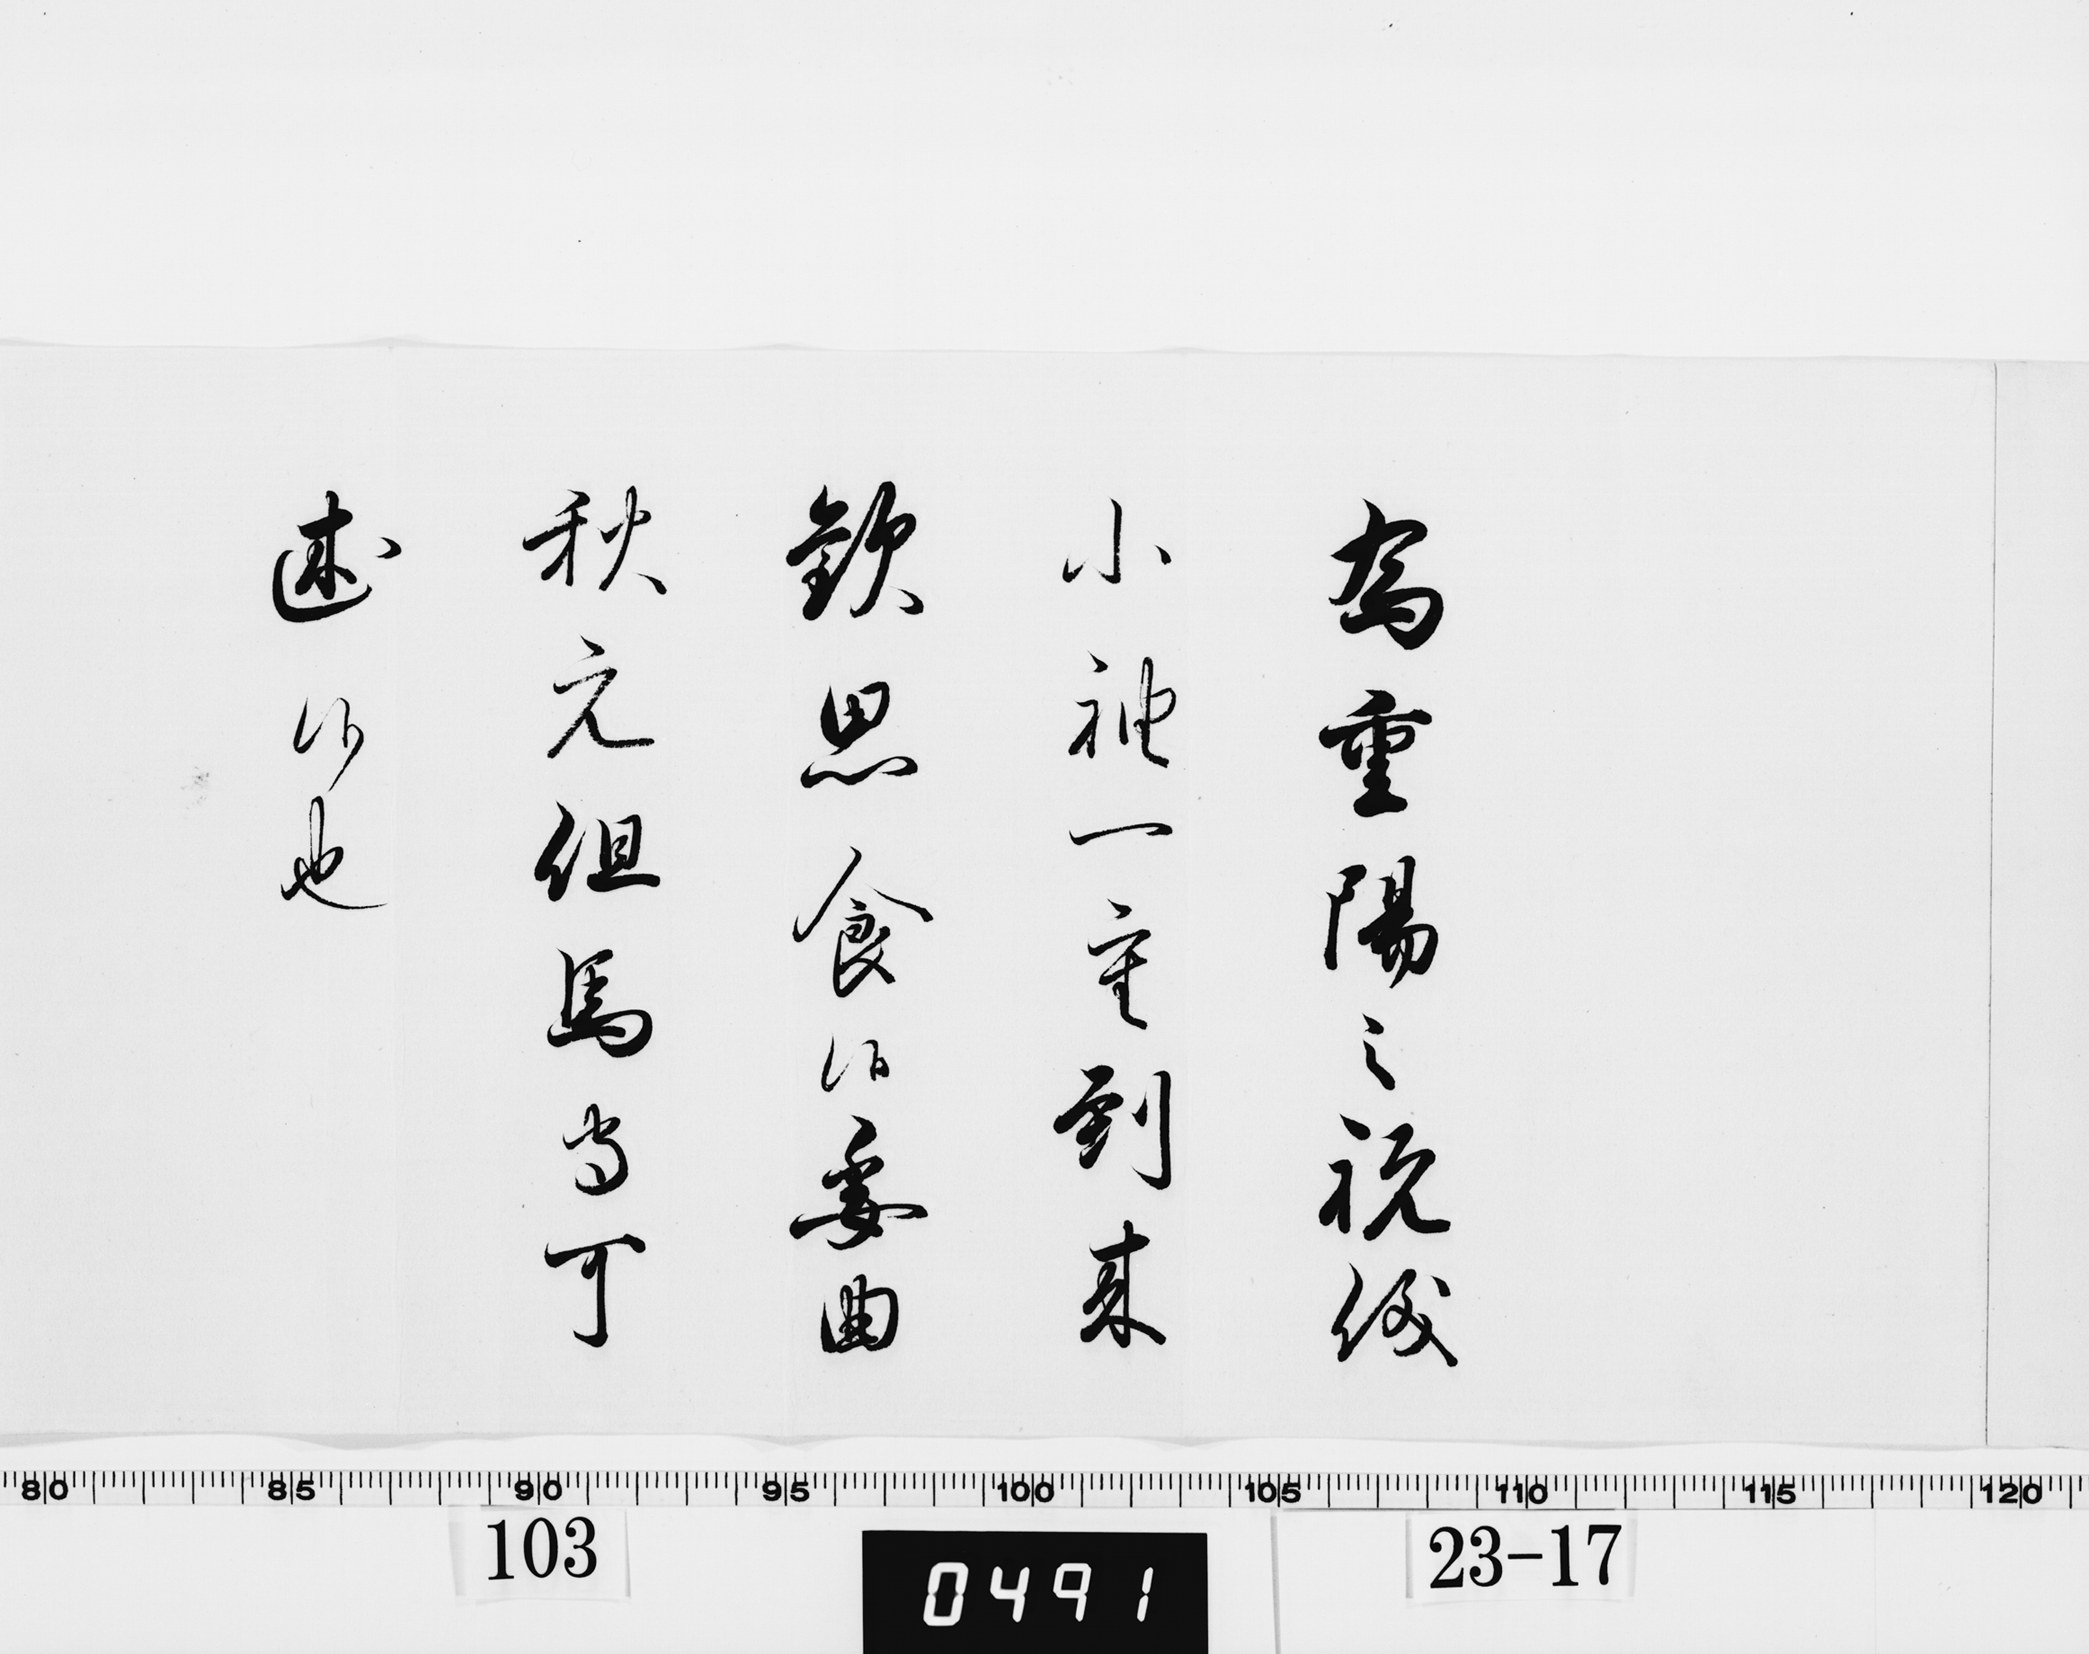 為重陽之祝儀
小袖一重到来
歓思食候委曲
秋元但馬守可
述候也
80 85 90 95 100 105 110 115 120
103 0491 23-17